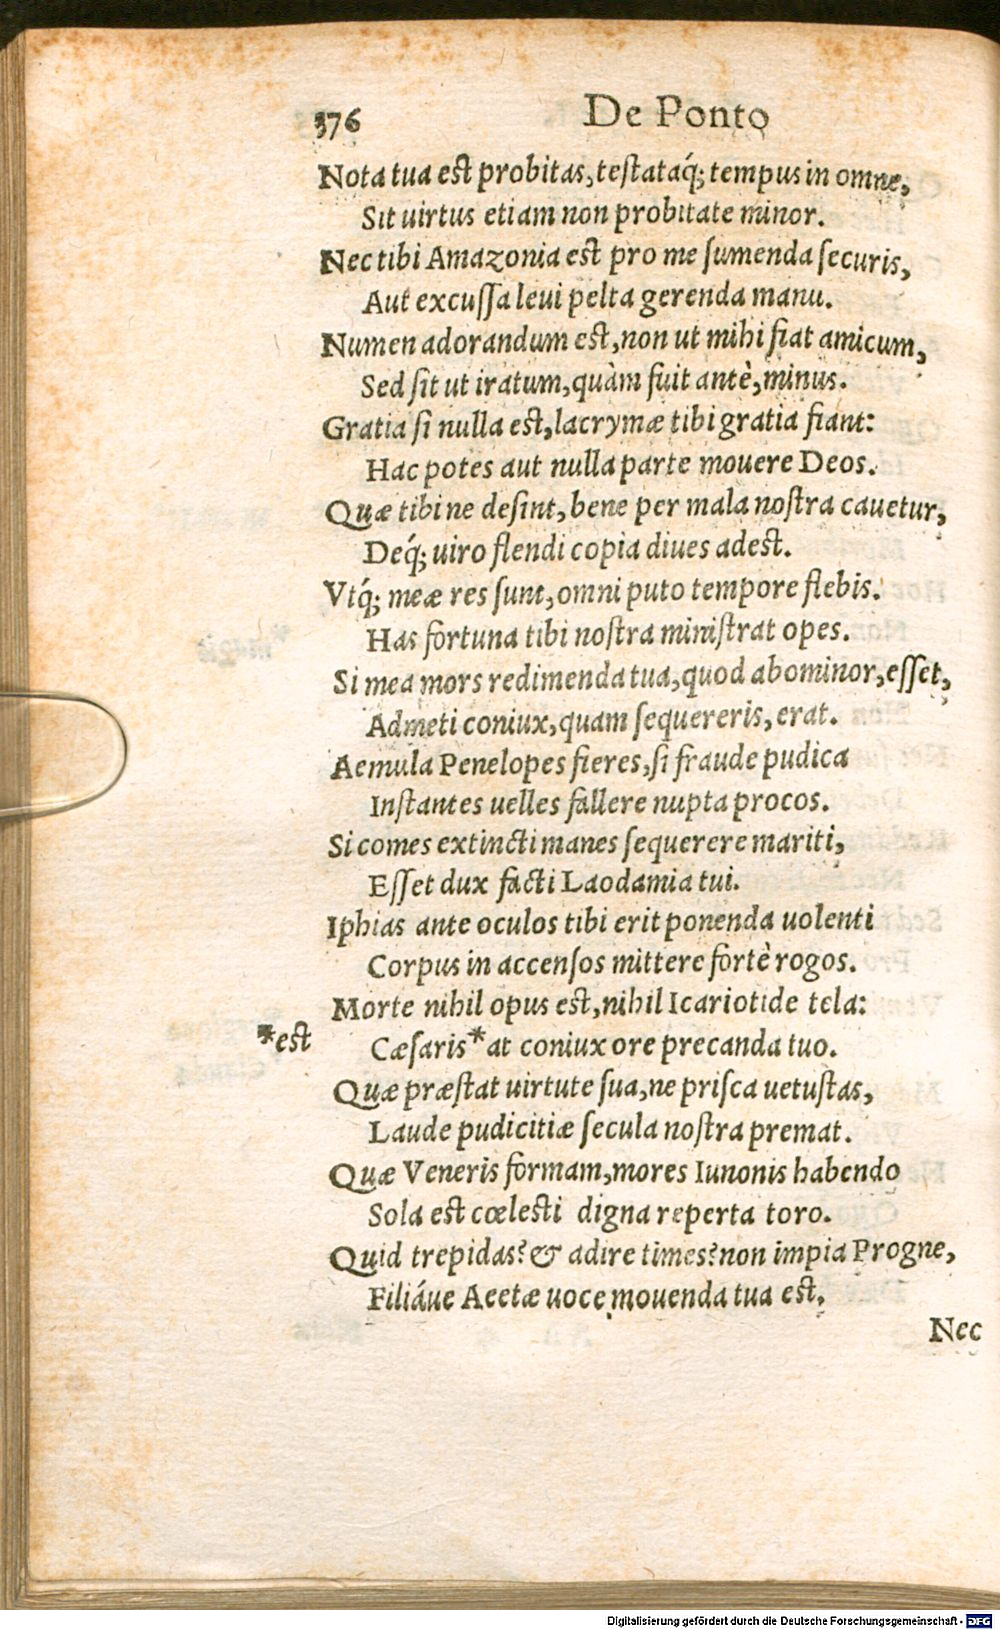 376 De Ponto
Nota tua est probitas, testataq́; tempus in omne,
Sit uirtus etiam non probitate minor.
Nec tibi Amazonia est pro me sumenda securis,
Aut excussa leui pelta gerenda manu.
Numen adorandum est, non ut mihi fiat amicum,
Sed sit ut iratum, quàm fuit antè, minus.
Gratia si nulla est, lacrymæ tibi gratia fiant:
Hac potes aut nulla parte mouere Deos.
Quæ tibi ne desint, bene per mala nostra cauetur,
Deq́; uiro flendi copia diues adest.
Vtq́; meæ res sunt, omni puto tempore flebis.
Has fortuna tibi nostra ministrat opes.
Si mea mors redimenda tua, quod abominor, esset,
Admeti coniux, quam sequereris, erat.
Aemula Penelopes fieres, si fraude pudica
Instantes uelles fallere nupta procos.
Si comes extincti manes sequerere mariti,
Esset dux facti Laodamia tui.
Iphias ante oculos tibi erit ponenda uolenti
Corpus in accensos mittere fortè rogos.
Morte nihil opus est, nihil Icariotide tela:
*est Cæsaris * at coniux ore precanda tuo.
Quæ præstat uirtute sua, ne prisca uetustas,
Laude pudicitiæ secula nostra premat.
Quæ Veneris formam, mores Iunonis habendo
Sola est cœlesti digna reperta toro.
Quid trepidas? & adire times? non impia Progne,
Filiáue Aeetæ uoce mouenda tua est.
Nec
Digitalisierung gefördert durch die Deutsche Forschungsgemeinschaft - DFG